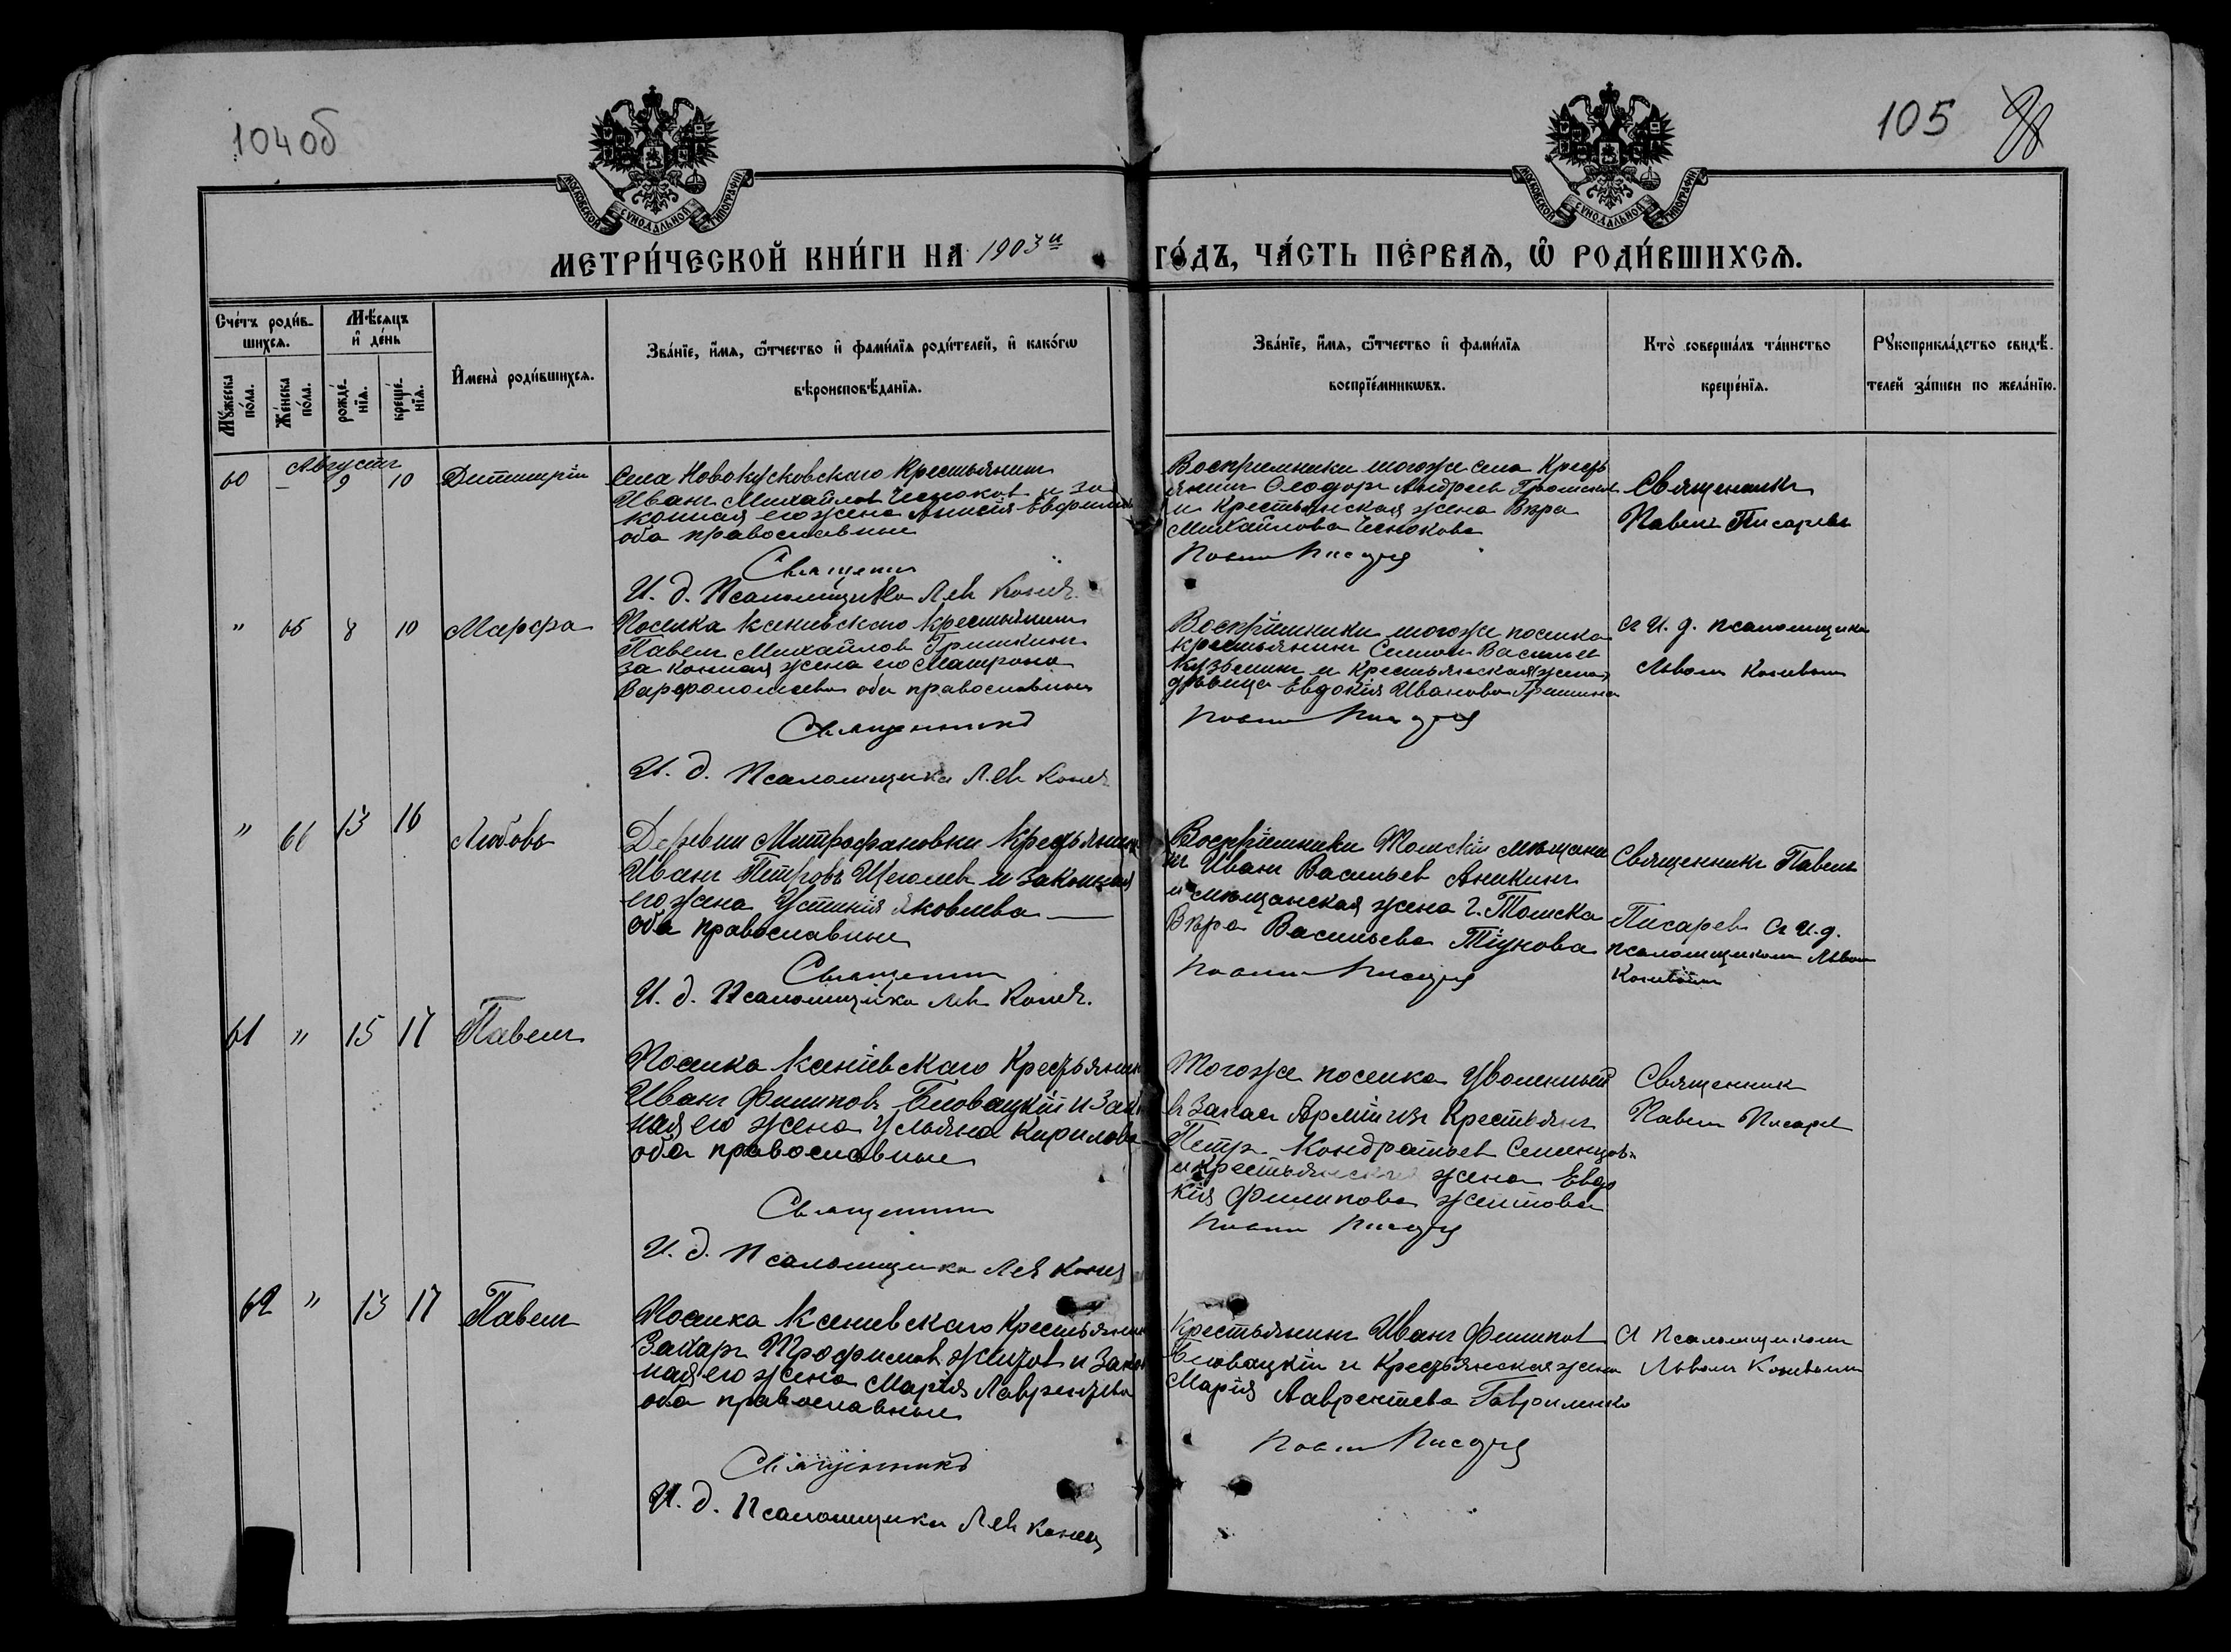 104об
105
98
МОСКОВСКОЙ СѴНОДАЛЬНОЙ ТИПОГРАФІИ
МОСКОВСКОЙ СѴНОДАЛЬНОЙ ТИПОГРАФІИ
МЕТРИ́ЧЕСКОЙ КНИ́ГИ НА 1903й ГО́ДЪ, ЧА́СТЬ ПЕ́РВАѦ, Ѡ РОДИ́ВШИХСѦ.
Сче́тъ роди́в-
шихсѧ.
Мꙋжеска по́ла.
Же́нска по́ла.
Мѣ́сѧцъ
и҆ де́нь
рожде́-
нїѧ.
креще́-
нїѧ.
И҆мена̀ роди́вшихсѧ.
Зва́нїе, и҆́мѧ, ѻ҆́тчество и҆ фами́лїѧ роди́телей, и҆ како́гѡ
вѣроисповѣ́данїѧ.
Зва́нїе, и҆́мѧ, ѻ҆́тчество и҆ фами́лїѧ
воспрїе́мникѡвъ.
Кто̀ соверша́лъ та́инство
креще́нїѧ.
Рꙋкоприкла́дство свидѣ́-
телей за́писи по жела́нїю.
Августъ
60 – 9 10 Дмитрій
Села Новокусковскаго Крестьянинъ
Иванъ Михайловъ Чесноковъ и за
конная его жена Анисія
оба православные
Священник
И. д. Псаломщика Лев Конев
Восприемники тогоже села Кресть
янинъ Ѳеодоръ Андреев
и Крестьянская жена Вѣра
Михайлова Чеснокова
Священникъ
Павелъ Писаревъ
" 65 8 10 Марфа
Поселка Ксеніевскаго Крестьянинъ
Павелъ Михайлов Гришкинъ
законная жена его Матрона
Варфоломеева оба православные
Священникъ
И. д. Псаломщика Лев Конев
Воспріемники тогоже поселка
крестьянинъ Симон Васильев
Кузьминъ и Крестьянская
дѣвица Евдокія Иванова Гришина
съ И. д. псаломщика
Львомъ Коневымъ
" 66 13 16 Любовь
Деревни Митрофановки Крестьянинъ
Иванъ Петровъ Щеголев и законная
его жена Устинія Яковлева —
оба православные
Священник
И. д. Псаломщика Лев Конев.
Воспріемники Томскій мѣщани
нъ Иванъ Васильев Аникинъ
и мѣщанская жена г. Томска
Вѣра Васильева Тіунова
Священникъ Павелъ
Писарев съ И. д.
псаломщикомъ Львом
Коневымъ
61 " 15 17 Павелъ
Поселка Ксеніевскаго Крестьянинъ
Иванъ Филиповъ Бловацкій и Зако
ная его жена Ульяна Кирилова
оба православные
Священник
И. д. Псаломщика Лев Конев
Тогоже поселка Уволенный
въ Запасъ Арміи изъ Крестьянъ
Петръ Кондратьев Семенцовъ
и крестьянская жена Евдо
кія Филипова Желтова
Священник
Павелъ Писарев
62 " 13 17 Павелъ
Поселка Ксеніевскаго Крестьянинъ
Захаръ Трофимов и Зако
ная его жена Марія Лаврентьева
оба православные
Священникъ
И. д. Псаломщика Лев Конев
Крестьянинъ Иванъ Филипов
Бловацкій и Крестьянская жена
Марія Лаврентьева Гавриленко
съ Псаломщикомъ
Львомъ Коневымъ